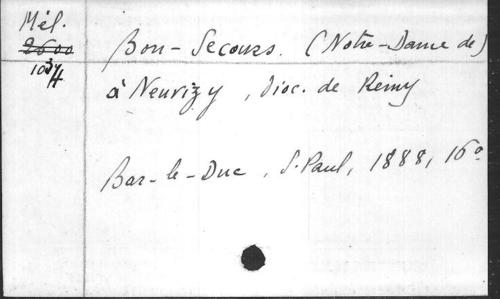 Mél.
2600
10
Bon-Secours. (Notre-Dame de)
à Neuvizy, dioc. de Reims
Bar-le-Duc, S. Paul, 1888, 16º